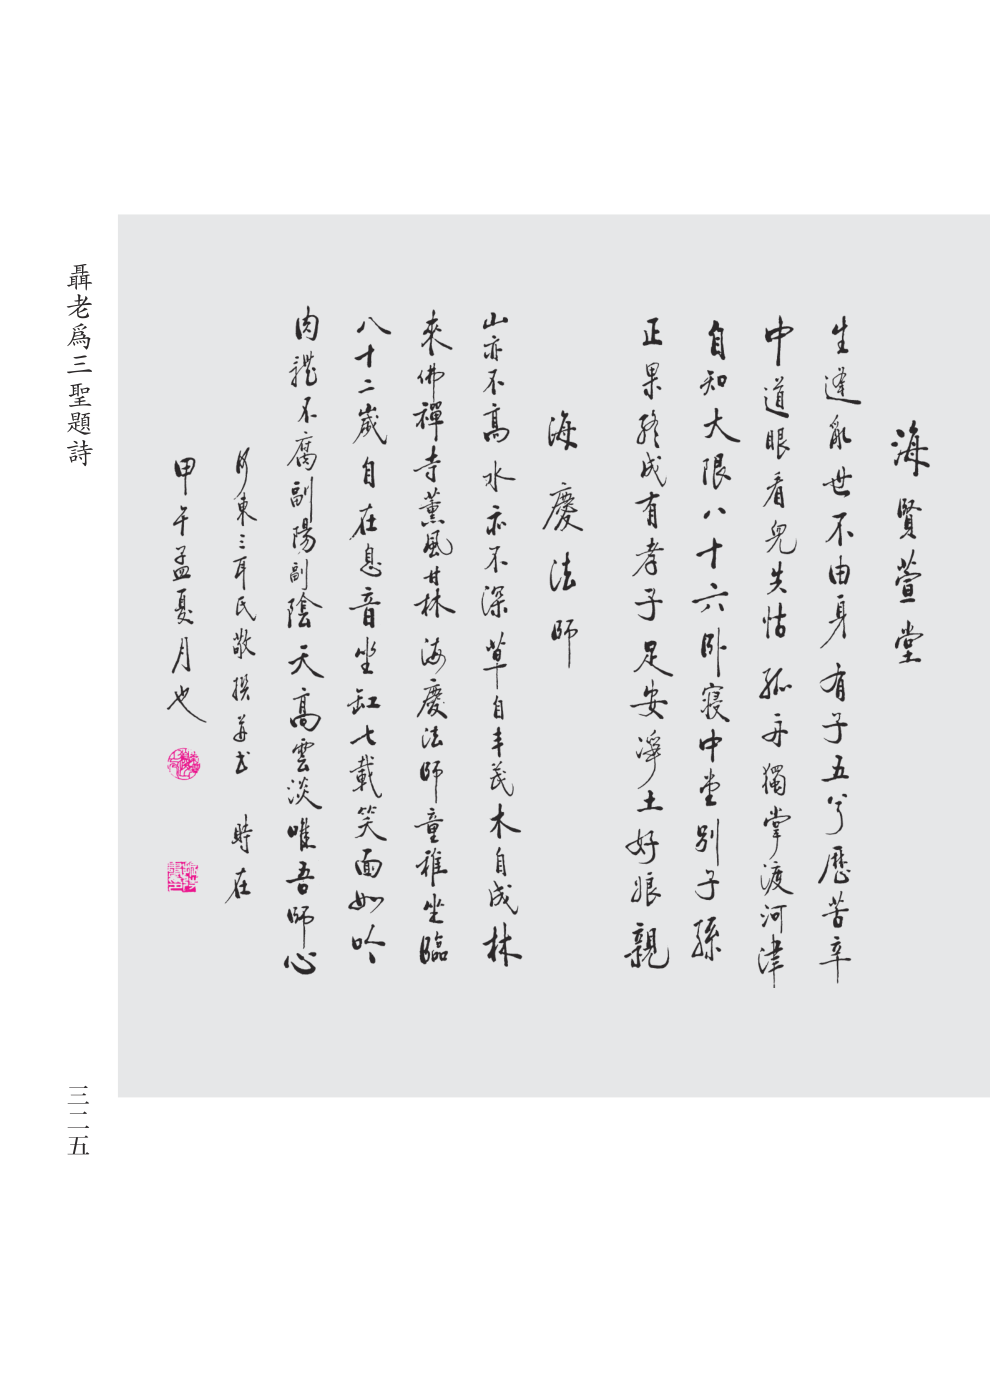 海賢萱堂
生逢亂世不由身有子五兮歷苦辛
中道眼看兒失怙孤舟獨掌渡河津
自知大限八十六卧寝中堂别子孫
正果終成有孝子足安淨土好娘親
海慶法師
山亦不高水亦不深草自丰茂木自成林
來佛禪寺薰風甘林海慶法師童稚坐臨
八十二歲自在息音坐缸七載笑面如吟
肉禮不腐副陽副陰天高雲淡唯吾師心
河東三耳氏敬撰并书時在
甲午孟夏月也
聶老爲三聖題詩
三二五